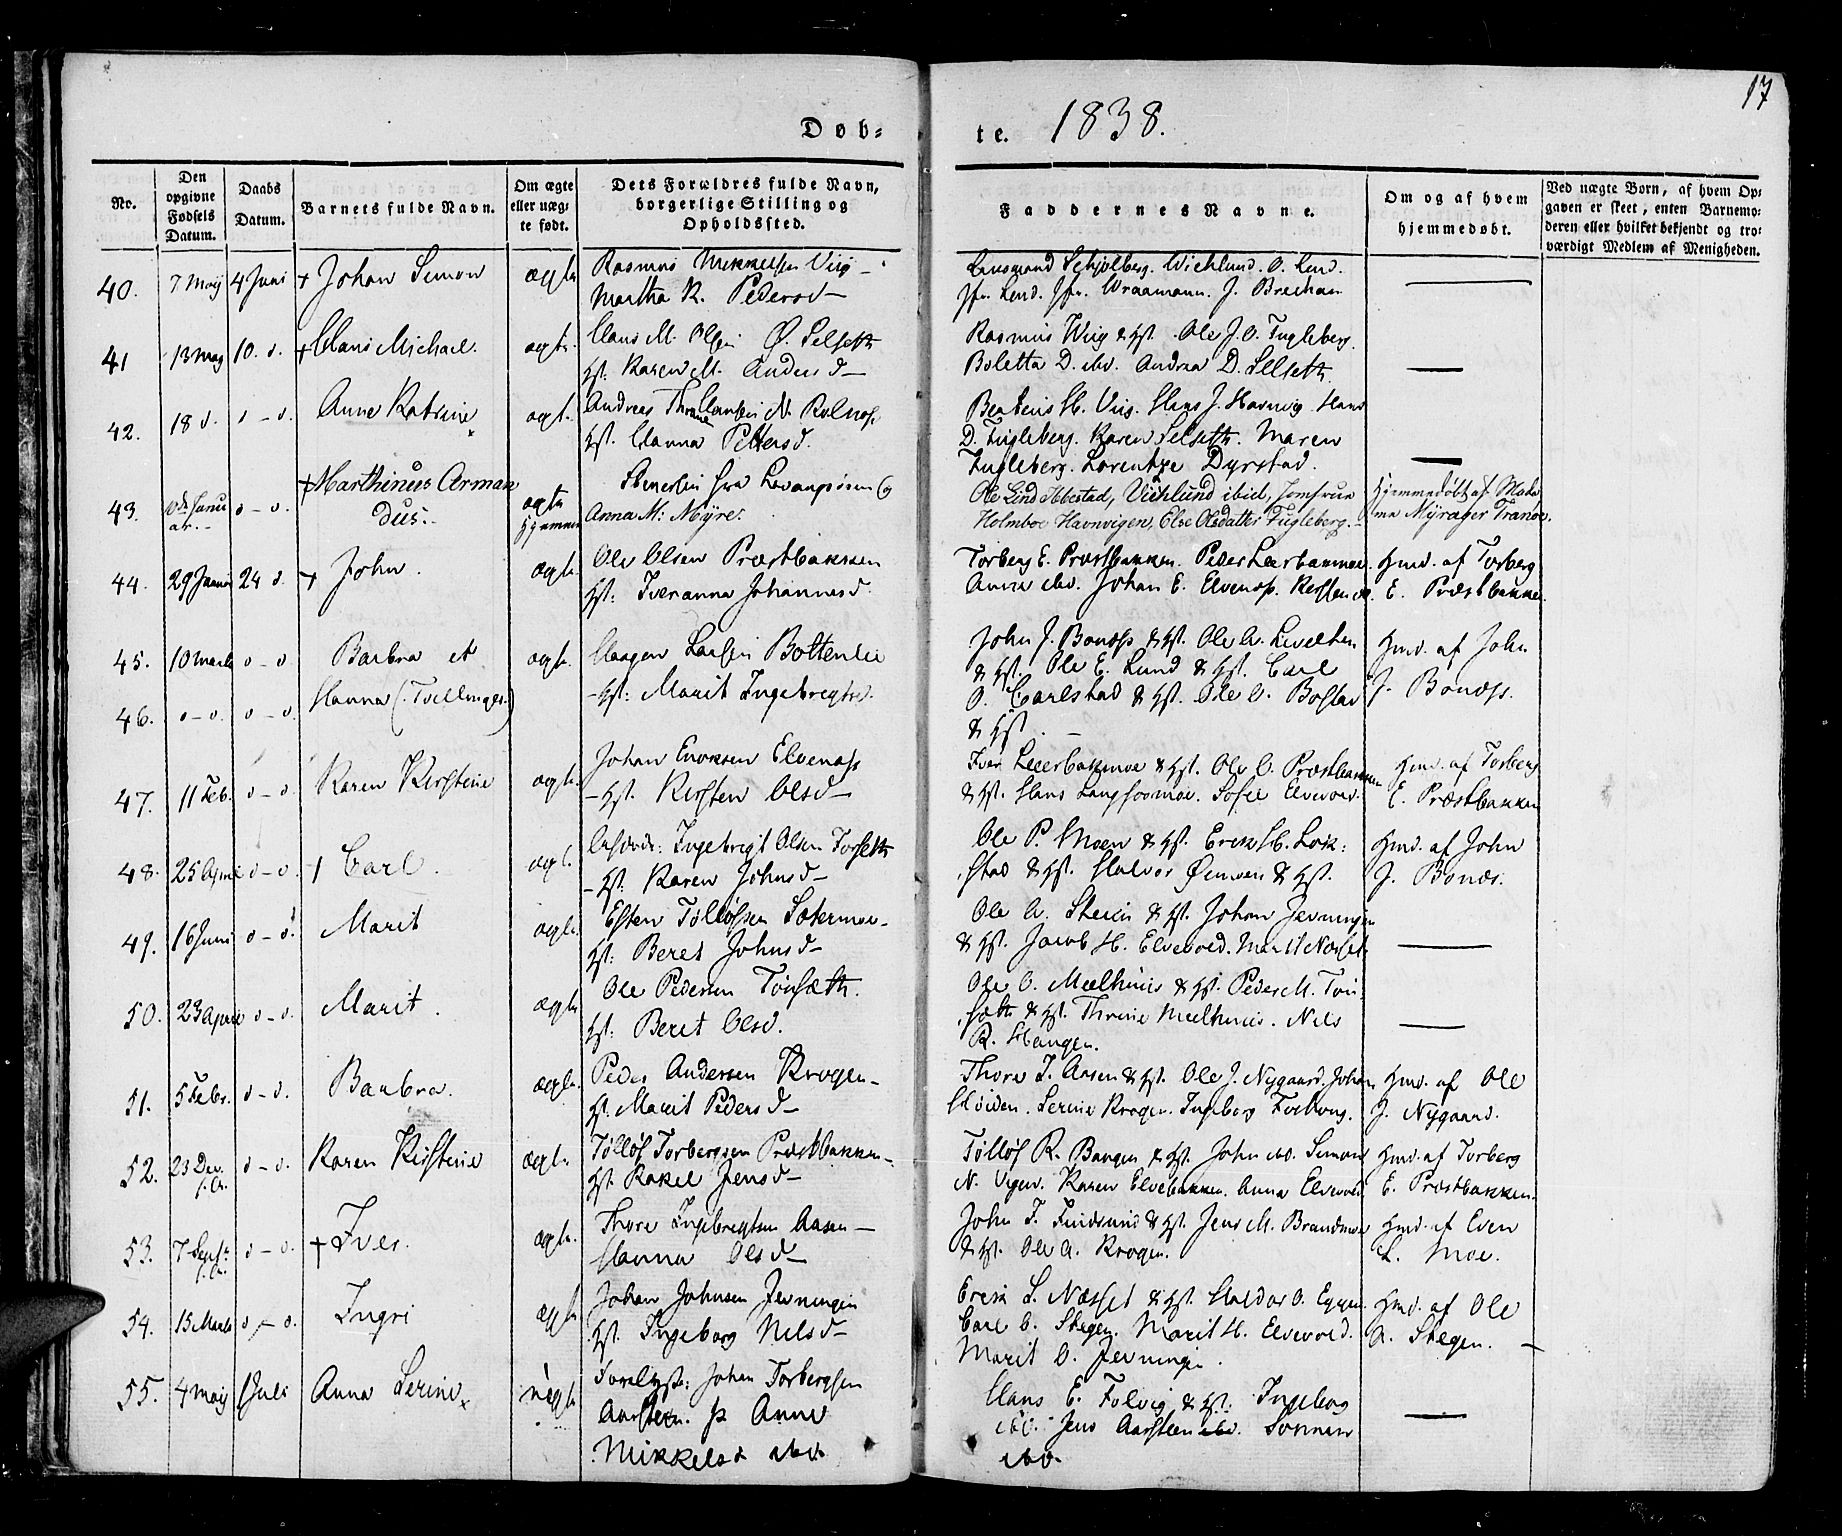 17
Døb-
te. 1838.
No.
Den opgivne Fødsels Datum.
Daabs Datum.
Barnets fulde Navn.
Om ægte eller uægte født.
Dets Forældres fulde Navn, borgerlige Stilling og Opholdssted.
Faddernes Navne.
Om og af hvem hjemmedøbt.
Ved uægte Børn, af hvem Opgaven er skeet, enten Barnemoderen eller hvilket bekjendt og troværdigt Medlem af Menigheden.
40. 7 Maij 4 Juni + Johan Simon ægte Rasmus Mikkelsen Viig –
Martha K. Pedersd –
Lensmand Schjølberg. Wichlund. O. Lind.
Jfr. Lind. Jfr. Wraamann. J. Brechan
41 13 Maij 10. d. + Hans Michael. ægte. Hans M. Olsen Ø. Selseth
Hst. Karen M. Andersd –
Rasmus Wiig & Hst. Ole J. O. Fugleberg.
Boletta D. ibd. Andrea D. Selseth.
42. 18 d. d – d. Anne Katrine ægte. Andreas Thrane Hansen N. Rolnæs.
Hst. Hanna Petersd.
Beateus H. Viig. Hans J. Havnvig. Hans
D. Fugleberg. Karen Selseth. Maren
Fugleberg. Lorentze Dyrstad.
43. Januar. d – d. + Marthinus Armandus. ægte Hjemme fra Levanger og
Anna M: Myre.
Ole Lind Ibbestad, Vichlund ibid, Jomfrue
Holmboe Havnvigen, Else Olsdatter Fugleberg.
Hjemmedøbt af Mada
me Myrager Tranøe.
44. 29 Januar 24 d. + John. ægte. Ole Olsen Præstbakken
Hst: Iveranna Johannesd.
Torberg E. Præstbakken. Peder Leerbakmoe.
Anna ibd. Johan E. Elvenæs. Kersten ibd.
Hmd. af Torberg
E. Præstbakken.
45. 10 Marts d – d Barbra et ægte. Haagen Larsen Bottenlie
46. d – d. d – d. Hanna (: Tvillinger:) – Hst: Marit Ingebregtsd.
John J. Bonæss & Hst. Ole A.
& Hst. Ole E. Lund & Hst. Carl
O. Carlstad & Hst. Ole O. Bostad
& Hst. –
Hmd. af John
J. Bonæss.
47. 11 Feb. d – d Karen Kirstine ægte. Johan Ericksen Elvenæs
– Hst. Kirsten Olsd –
Iver Leerbakmoe & Hst. Ole O. Præstbakken
& Hst. Hans Langfoosmoe. Sofie Elvevold.
Hmd. af Torberg
E. Præstbakken
48. 25 April d – d. + Carl. ægte. Ingebrigt Olsen Fosseth
– Hst. Karen Johnsd –
Ole P. Moen & Hst. Erik H. Løk:
stad & Hst. Halvor Øienvoen & Hst.
Hmd. af John
J. Bonæs.
49. 16 Juni d – d. Marit ægte. Esten Tølløfsen Sætermoe –
Hst: Beret Johnsd –
Ole A. Steien & Hst. Johan Jerningen
& Hst. Jacob H. Elvevold. Marit Næsset
50. 23 April d – d. Marit. ægte Ole Pedersen Tønsæth.
Hst: Beret Olsd.
Ole O. Meelhuus & Hst. Peder M. Tøn-
sæth & Hst. Thrine Meelhuus. Nils
R. Haugen.
51. 5 Febr. d – d. Barbra. ægte. Peder Andersen Krogen –
Hst. Marit Pedersd –
Thore I. Aasen & Hst. Ole J. Nygaard. Johan
Høiden. Serine Krogen. Ingeborg.
Hmd. af Ole
J. Nygaard.
52. 23 Dec. f. A. d – d. Karen Kirstine ægte. Tølløf Torbergsen Præstbakken –
Hst. Rakel Jensd –
Tølløf R. Bangen & Hst. John ibd. Simon
N. Vigen. Karen Elvebakken. Anna Elvevold
Hmd. af Torberg
E. Præstbakken.
53. 7 Septr. f. A. d – d. + Iver. ægte. Thore Ingebregtsen Aasen –
Hanna Olsd –
John T. Fuudsund & Hst. Jens M. Brandmoe
& Hst. Ole A. Krogen.
Hmd. af Even
L. Moe.
54. 15 Marts d – d. Ingri ægte Johan Johnsen Jerningen
Hst. Ingeborg Nilsd –
Erik S. Næsset & Hst. Haldor O. Eggen.
Carl O. Stegen. Marit H. Elvevold.
Marit O. Jerningen.
Hmd. af Ole
A. Stegen. –
55. 4 Maij 1 Juli Anna Serine uægte Johan Torbergsen
Aarsteen. p. Anne
Mikkelsd ibd.
Hans E. Følvig & Hst. Ingeborg
ibd. Jens Aarsteen ibd. Sønnen
ibd.